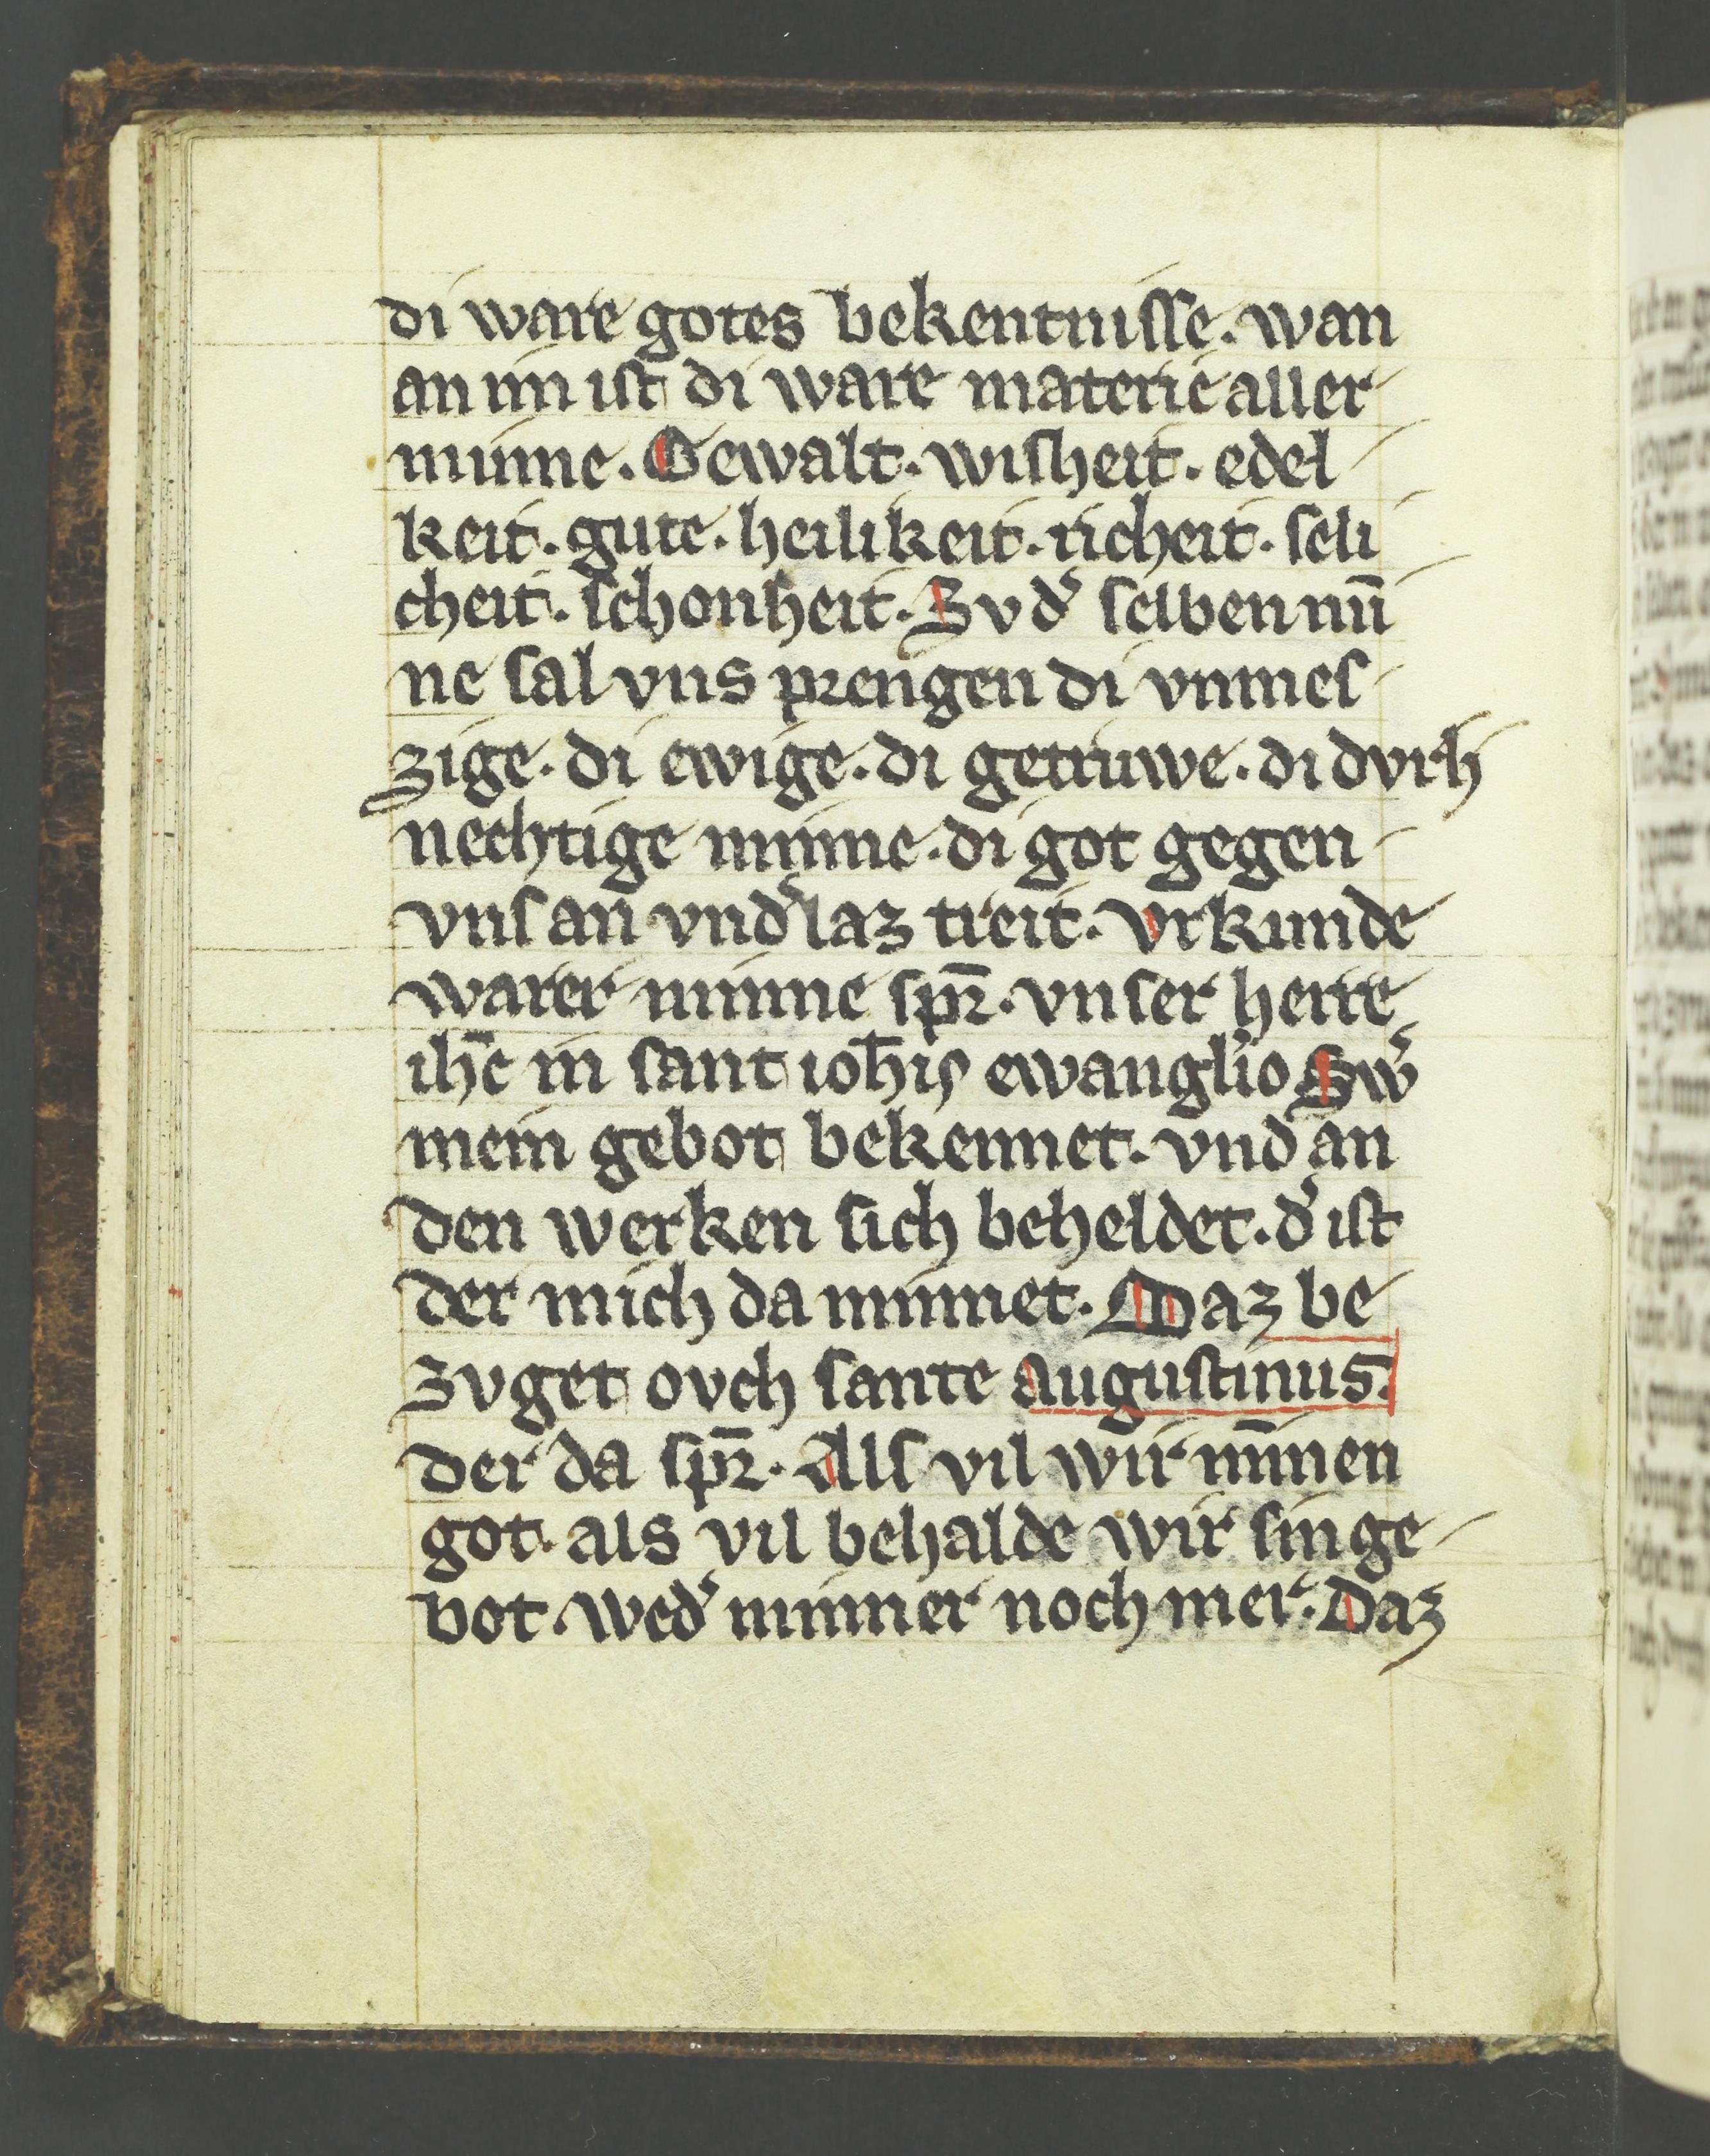 di ware gotes bekentnisse. wan
an im ist di ware materie aller
minne. Gewalt. wisheit. edel
keit. gute. heilikeit. richeit. seli
cheit. schonheit. Zv d᾽ selben mī
ne sal vns prengen di vnmes
zige. di ewige. di getriuwe. di dvrh
nechtige minne. di got gegen
vns an vnd᾽laz treit. Vrkunde
warer minne spꝛ̄. vnser herre
ihc̄ in sant ioh̄is ewangl᾽io Sw᾽
mein gebot bekennet. vnd an
den werken sich beheldet. d᾽ ist
der mich da minnet. Daz be
zvget ovch sante Augustinus.
der da spꝛ̄. Als vil wir mīnen
got. als vil behalde wir sin ge
bot. wed᾽ minner noch mer. Daz